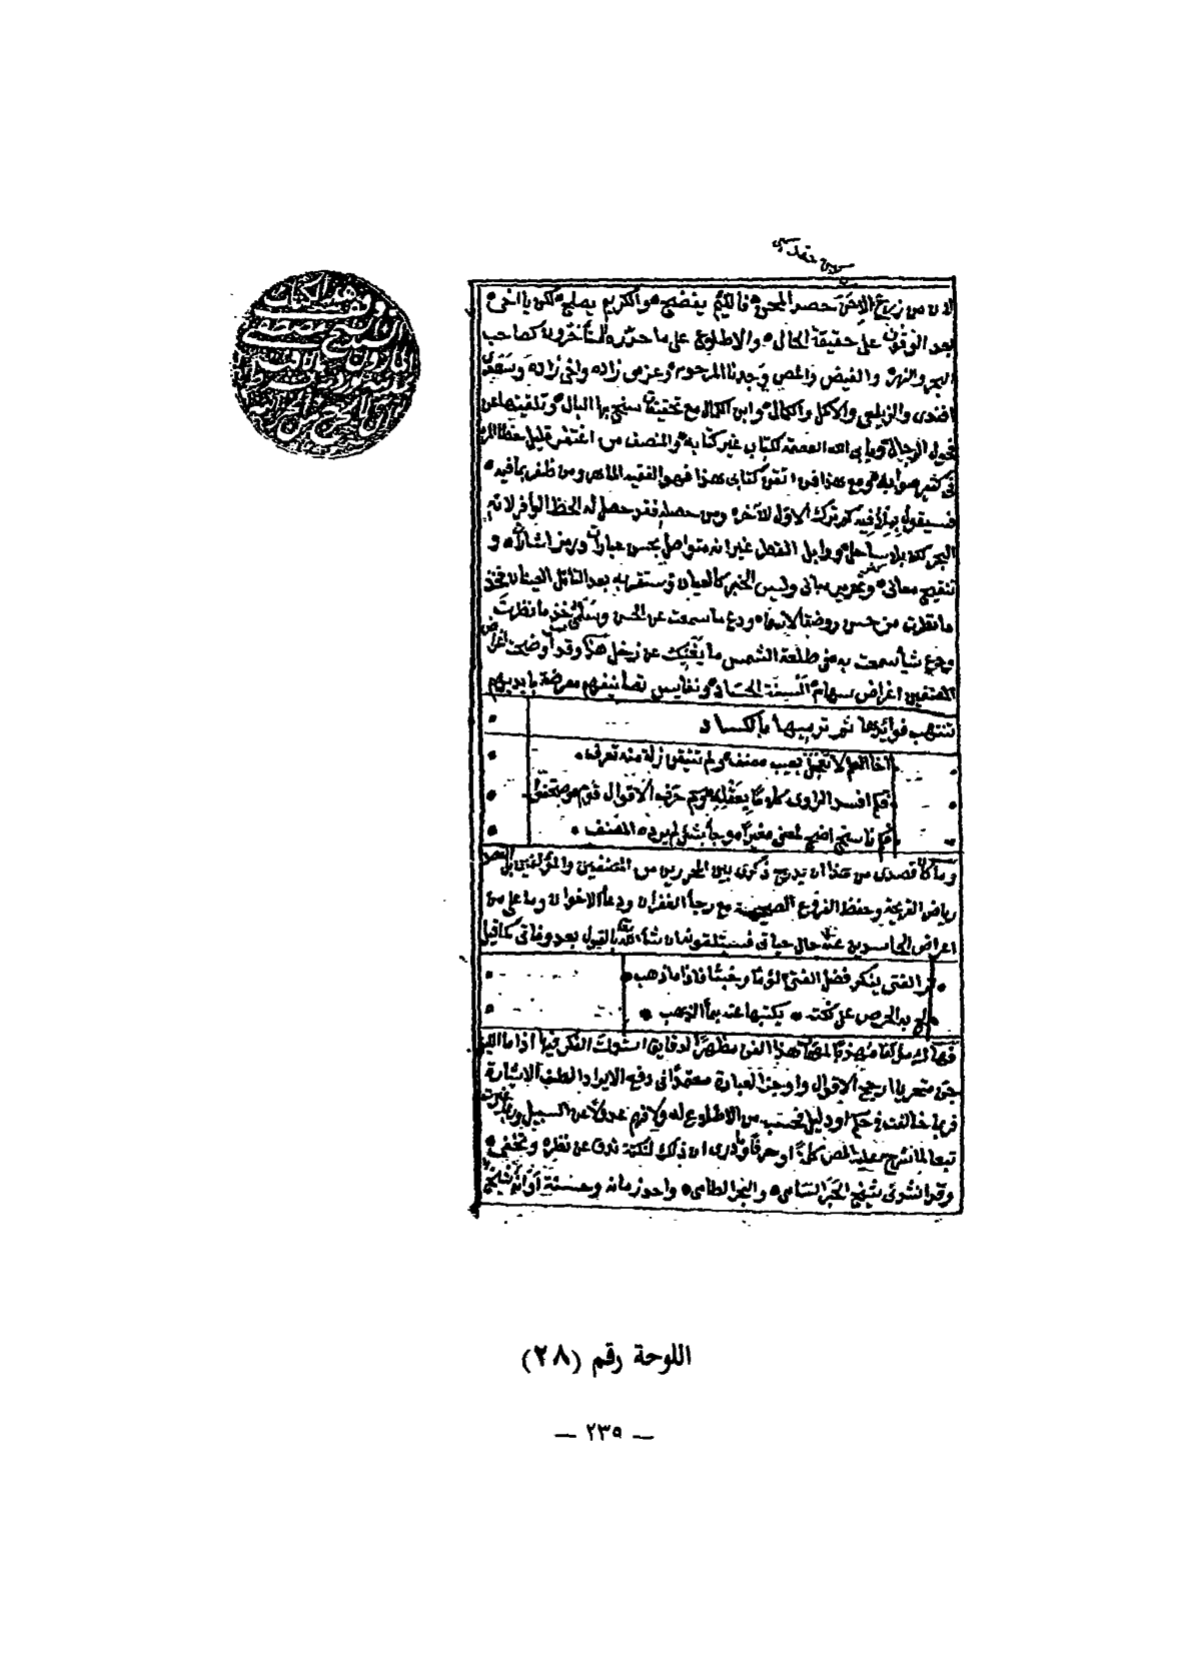 لان من زرع الاحن حصد المحن فاللئيم يفضح والكريم يصلح لكن يا اخي
بعد الوقوف على حقيقة الحال والاطلاع على ما حرره المتأخرون كصاحب
البحر والنهر والفيض والمص وجدنا المرحوم وعزمي زاده واخي زاده وسعدي
افندي والزيلعي والاكمل والكمال وابن الكمال مع تحقيقات سنح بها البال وتلقيتها عن
فحول الرجال ويابى الله العصمة لكتاب غير كتابه والمنصف من اغتفر قليل خطا المرء
في كثير صوابه ومع هذا فمن اتقن كتابي هذا فهو الفقيه الماهر ومن ظفر بما فيه
فسيقول بملأ فيه كم ترك الاول للاخر ومن حصله فقد حصل له الحظ الوافر لانه
البحر لكن بلا ساحل ووابل القطر غير انه متواصل بحسن عبارات ورمز اشارات و
تنقيح معاني وتحرير مباني وليس الخبر كالعيان وستقر به بعد التامل العينان فخذ
ما نظرت من حسن روضه الاسما ودع ما سمعت عن الحسن وسلمى خذ ما نظرت
ودع شيأ سمعت به في طلعة الشمس ما يغنيك عن زحل هذا وقد اضحت اعراض
المصنفين اغراض سهام السنة الحساد ونفايس تصانيفهم معرضة بايديهم
تنتهب فوائدها ثم ترميها بالكساد
اخا العلم لا تعجل بعيب مصنف ولم تتيقن زلة منه تعرف
فكم افسد الراوي كلاما بعقله وكم حرف الاقوال قوم وصحفوا
وكم ناسخ اضحى لمعنى مغيرا وجأ بشئ لم يرده المصنف
وما كان قصدي من هذا ان يدرج ذكري بين المحررين من المصنفين والمؤلفين بل
رياض القريحة وحفظ الفروع الصحيحة مع رجأ الغفران ودعأ الاخوان وما علي من
اعراض الحاسدين عنه حال حياتي فسيتلقونه ان شأ الله تعالى بالقبول بعد وفاتي كما قيل
ترا الفتى ينكر فضل الفتى لؤما وخبثا فاذا ما ذهب
لج به الحرص على نكتة يكتبها عنه بمأ الذهب
فهاك مؤلفا مهذبا لمهمات هذا الفن مظهرا لدقايق استعملت الفكر فيها اذا ما الليل
جن متحريا ارجح الاقوال واوجز العبارة معتمدا في دفع الايراد الطف الاشارة
فربما خالفت في حكم او دليل فحسبه من لا اطلاع له ولا فهم عدولا عن السبيل وربما غيرت
تبعا لما شرح عليه المص كلمة او حرفا وما درى ان ذلك لنكتة تدق عن نظره وتخفى
وقد انشدني شيخي الحبر السامي والبحر الطامي واحد زمانه وحسنة اوانه شيخ
اللوحة رقم (٢٨)
— ٢٣٩ —